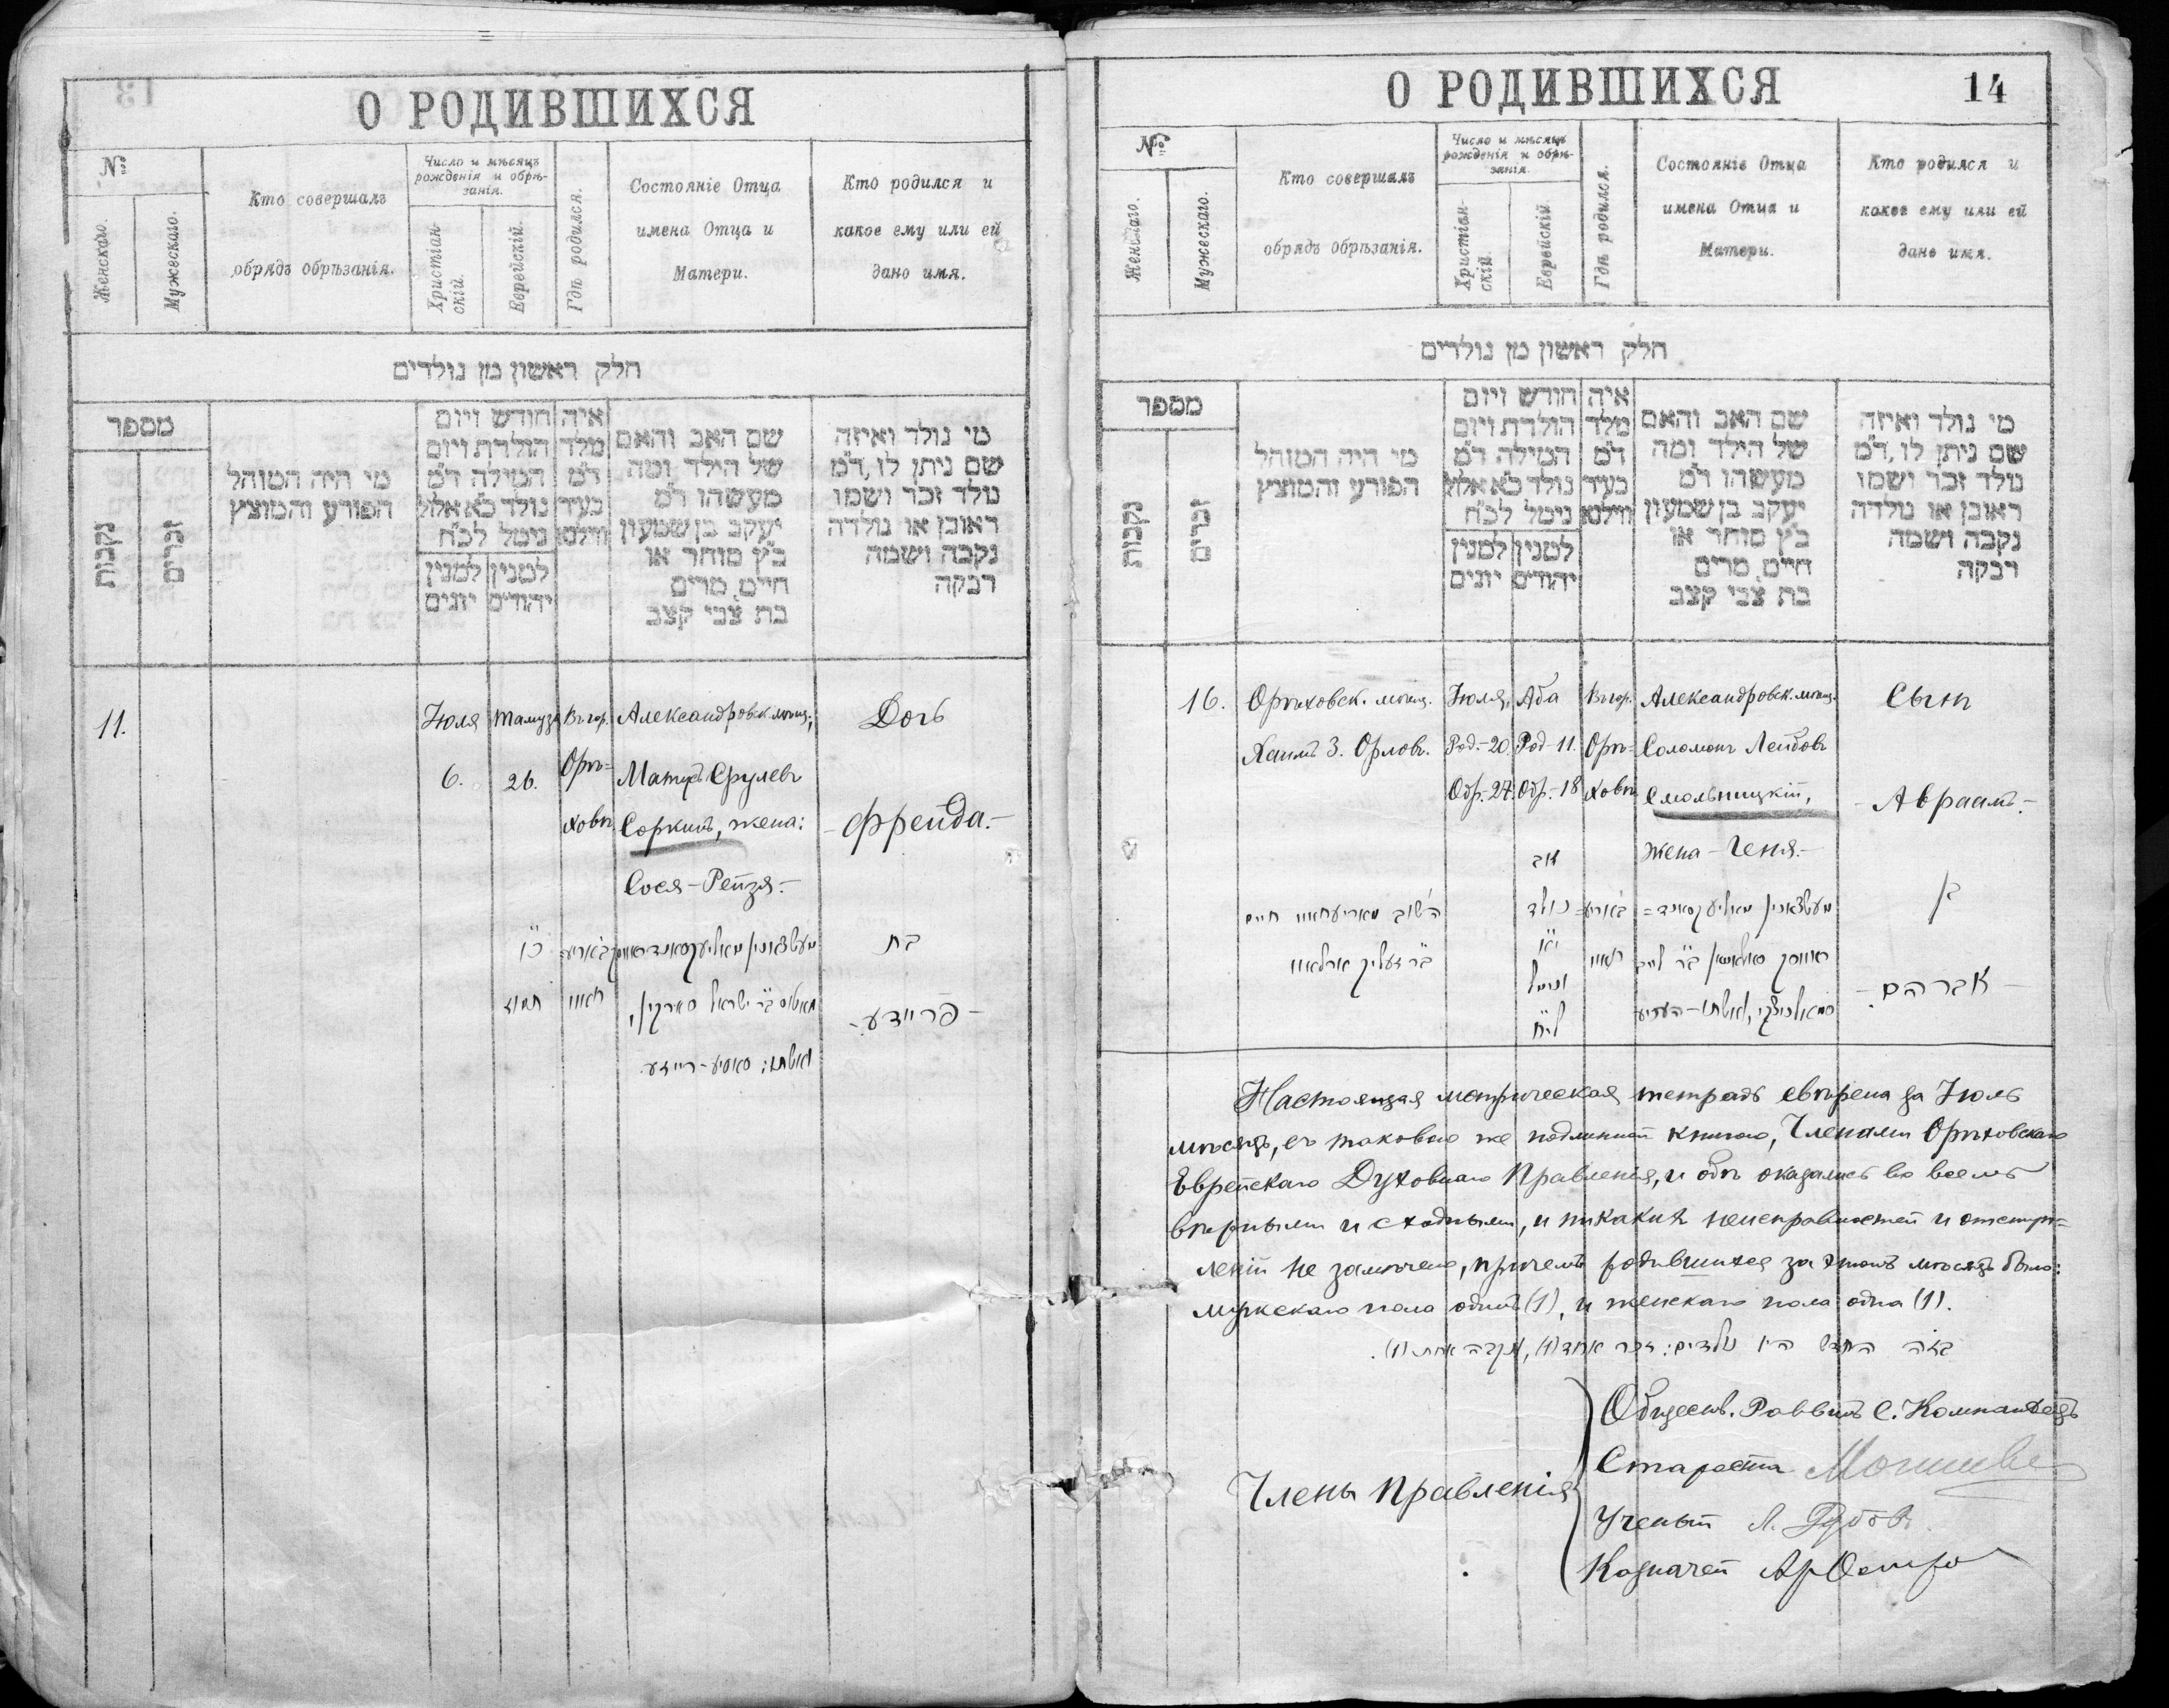 О РОДИВШИХСЯ
№
Женскаго.
Мужескаго.
Кто совершалъ
обрядъ обрѣзанія.
Число и мѣсяцъ
рожденія и обрѣ-
занія.
Христіан-
скій.
Еврейскій.
Гдѣ родился.
Состояніе Отца
имена Отца и
Матери.
Кто родился и
какое ему или ей
дано имя.
חלק ראשון מן נולדים
מספר
נקבות
זכרים
מי היה המוהל
הפורע והמוצץ
חודש ויום
הולדת ויום
המילה ד"מ
נולד כ"א אלול
נימל לכ"ח
למנין
יונים
למנין
יהודים
איה
מלד
ד"מ
בעיר
ווילנא
שם האב והאם
של הילד ומה
מעשהו ד"מ
יעקב בן שמעון
כ"ץ סוחר או
חייט, מרים
בת צבי קצב
מי נולד ואיזה
שם ניתן לו, ד"מ
נולד זכר ושמו
ראובן או נולדה
נקבה ושמה
רבקה
11.
Іюля
6.
Тамуза
26.
Въ гор.
Орѣ=
ховѣ
Александровск. мѣщ.,
Сруловъ
Соркинъ, жена:
Сося-Рейзя.-
Дочь
-Фрейда.-
כ"ו
תמוז
בת
-פריידע.-
О РОДИВШИХСЯ
14
№
Женскаго.
Мужескаго.
Кто совершалъ
обрядъ обрѣзанія.
Число и мѣсяцъ
рожденія и обрѣ-
занія.
Христіан-
скій.
Еврейскій
Гдѣ родился.
Состояніе Отца
имена Отца и
Матери.
Кто родился и
какое ему или ей
дано имя.
חלק ראשון מן נולדים
מספר
נקבות
זכרים
מי היה המוהל
הפורע והמוצץ
חודש ויום
הולדת ויום
המילה ד"מ
נולד כ"א אלול
נימל לכ"ח
למנין
יונים
למנין
יהודים
איה
מלד
ד"מ
בעיר
ווילנא
שם האב והאם
של הילד ומה
מעשהו ד"מ
יעקב בן שמעון
כ"ץ סוחר או
חייט, מרים
בת צבי קצב
מי נולד ואיזה
שם ניתן לו, ד"מ
נולד זכר ושמו
ראובן או נולדה
נקבה ושמה
רבקה
16.
Орѣховск. мѣщ.
Хаимъ З. Орловъ.
Іюля,
Род.-20.
Обр.-27.
Аба
Род-11.
Обр.-18
Въ гор.
Орѣ=
ховѣ
Александровск. мѣщ.
Соломонъ Лейбовъ
Смольницкій,
жена - Геня.-
Сынъ
-Авраамъ.-
אב
נולד
י"א
נימול
לי"ח
בן
-אברהם.-
Настоящая метрическая тетрадь свѣрена за Іюль
мѣсяцъ, съ таковою же подлинной книгою, Членами Орѣховскаго
Еврейскаго Духовнаго Правленія, и обѣ оказались во всемъ
вѣрными и сходными, и никакихъ неисправностей и отступ=
леній не замѣчено, причемъ родившихся за этотъ мѣсяцъ было:
мужскаго пола одинъ (1), и женскаго пола одна (1).
בזה החדש היו נולדים: זכר אחד (1), ונקבה אחת (1).
Члены Правленія
Обществ. Раввинъ С. Компанѣецъ
Староста
Ученый
Казначей